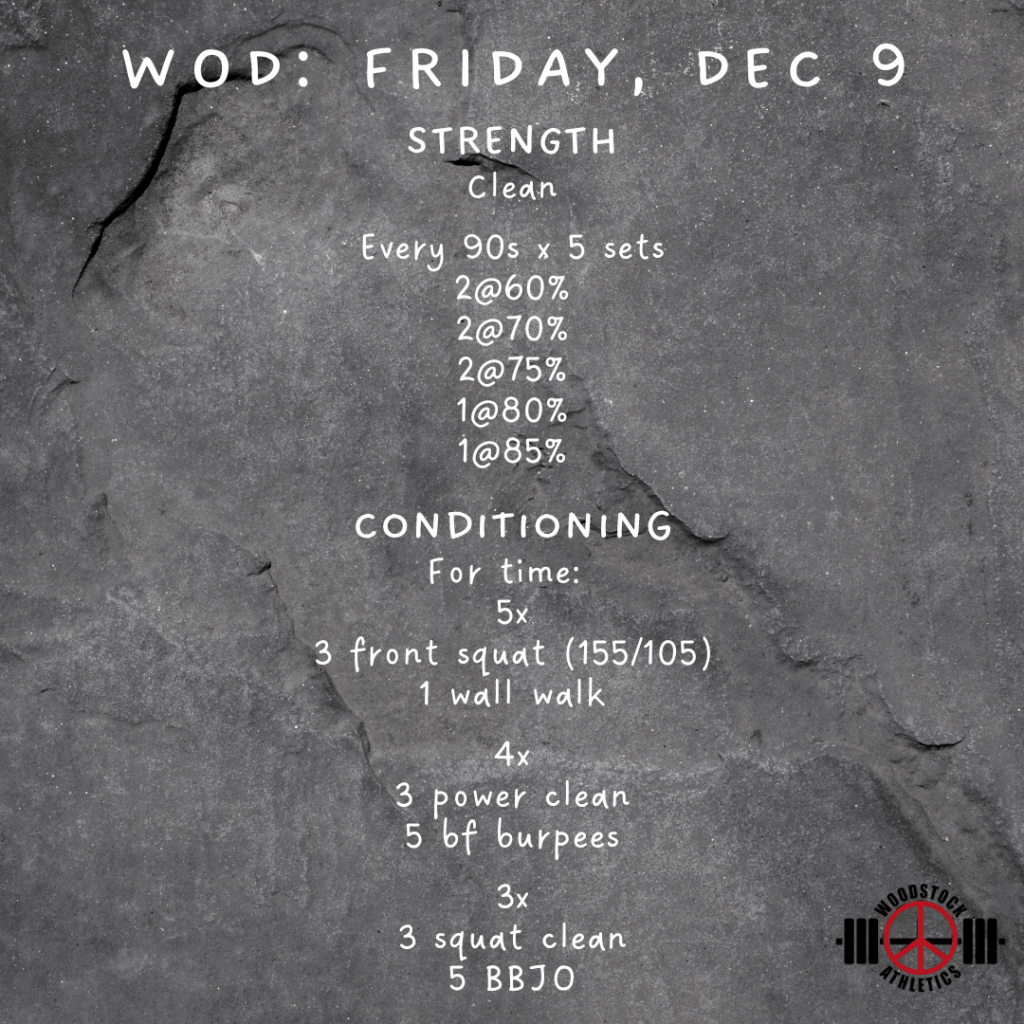 WOD: FRIDAY, DEC 9
STRENGTH
Clean
Every 90s x 5 sets
2@60%
2@70%
2@75%
1@80%
1@85%
CONDITIONING
For time:
5x
3 front squat (155/105)
1 wall walk
4x
3 power clean
5 bf burpees
3x
3 squat clean
5 BBJO
WOODSTOCK
ATHLETICS